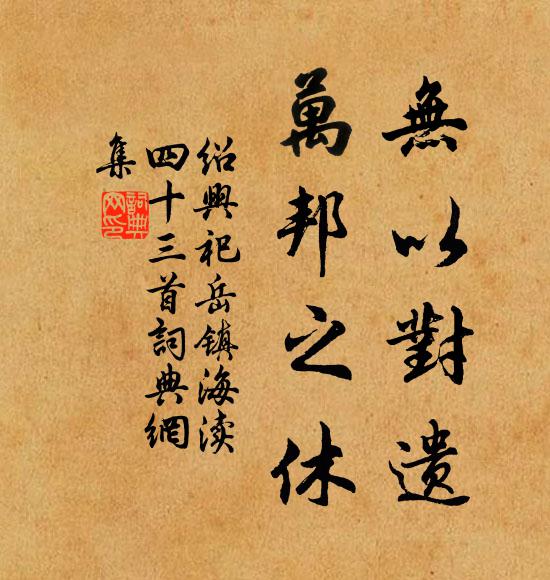 無以對遗
萬邦之休
绍興祀岳镇海渎
四十三首詞典網
集
詞典網印